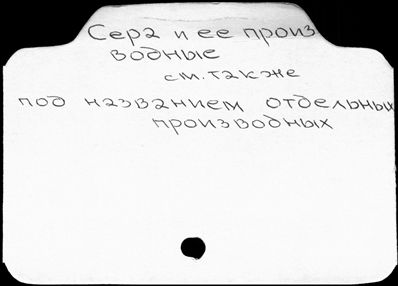 Сера и ее произ
водные
см. также
под названием отдельных
производных